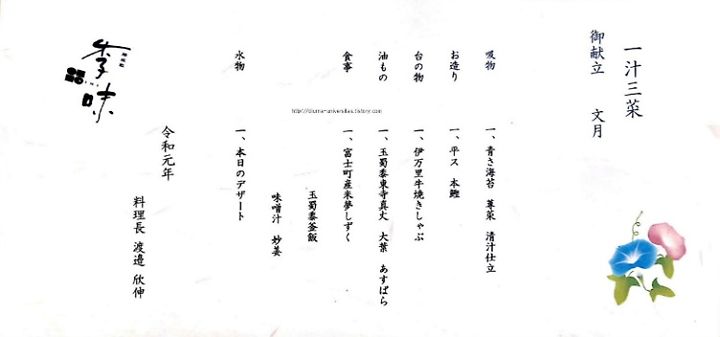 一汁三菜
御献立　文月
吸物　一、青さ海苔　蓴菜　清汁仕立
お造り　一、平ス　本鰹
台の物　一、伊万里牛焼きしゃぶ
油もの　一、玉蜀黍東寺真丈　大葉　あすぱら
食事　一、富士町産米夢しずく
玉蜀黍釜飯
味噌汁　妙姜
水物　一、本日のデザート
令和元年
料理長　渡邉　欣伸
季味
http://diurna-universitas.tistory.com